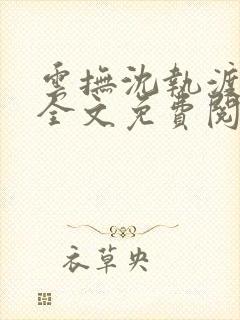 雲撫沈執渡
全文免費閱
衣草央